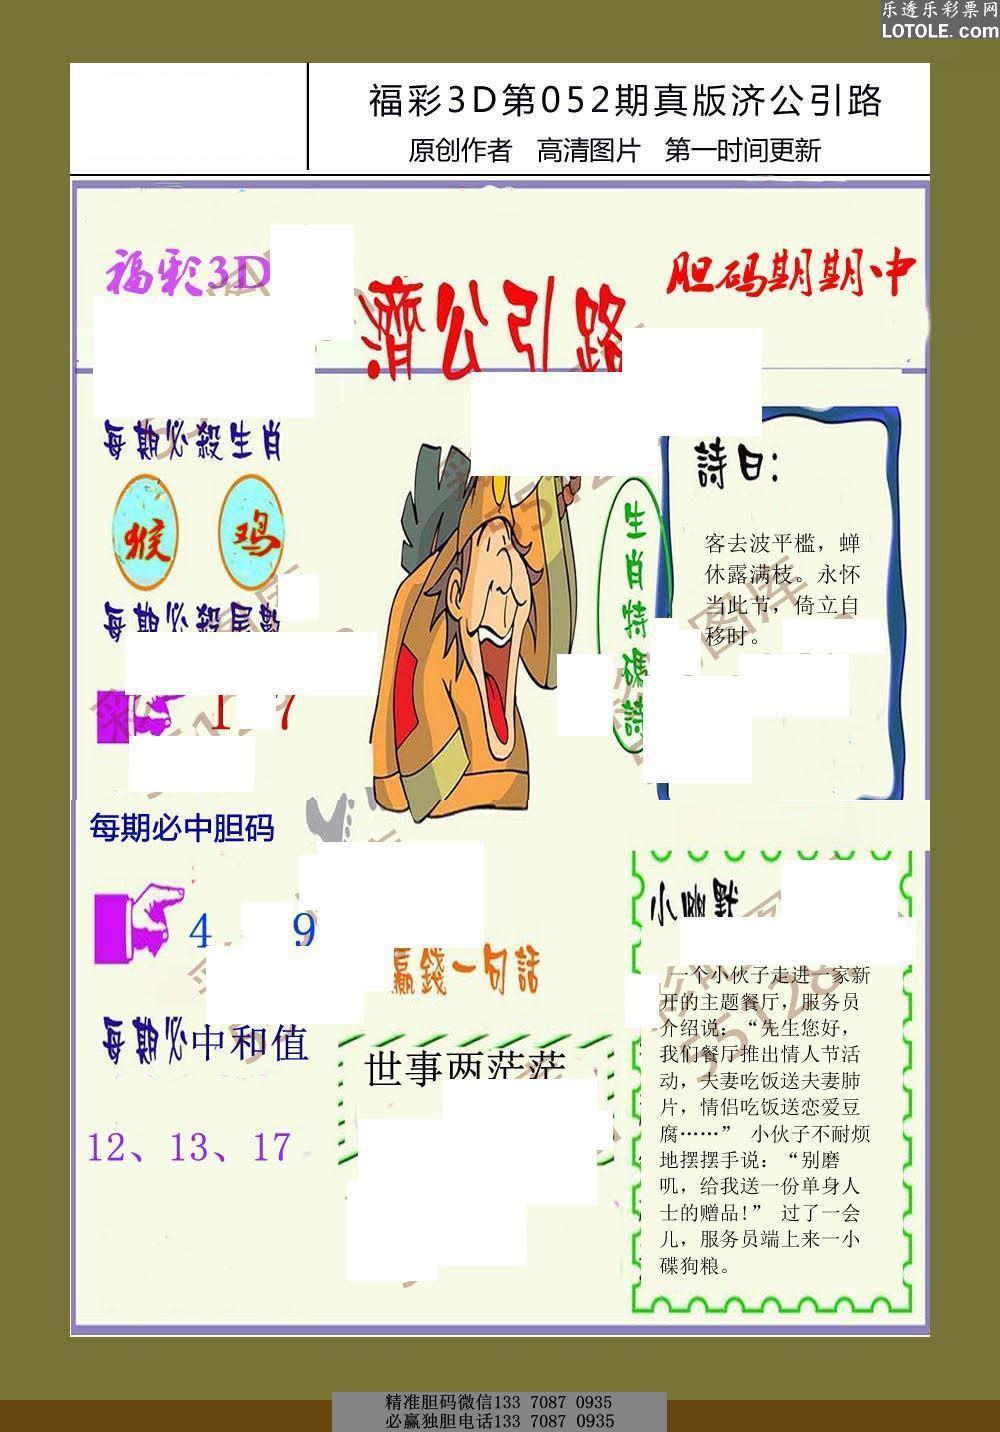 乐透乐彩票网
LOTOLE.com
福彩3D第052期真版济公引路
原创作者 高清图片 第一时间更新
福彩3D
胆码期期中
濟公引路
每期必殺生肖
猴 鸡
每期必殺尾數
1 7
每期必中胆码
4 9
每期必中和值
12、13、17
生肖特碼詩
詩曰：
客去波平槛，蝉
休露满枝。永怀
当此节，倚立自
移时。
贏錢一句話
世事两茫茫
小幽默
一个小伙子走进一家新
开的主题餐厅，服务员
介绍说：“先生您好，
我们餐厅推出情人节活
动，夫妻吃饭送夫妻肺
片，情侣吃饭送恋爱豆
腐……” 小伙子不耐烦
地摆摆手说：“别磨
叽，给我送一份单身人
士的赠品!” 过了一会
儿，服务员端上来一小
碟狗粮。
精准胆码微信133 7087 0935
必赢独胆电话133 7087 0935